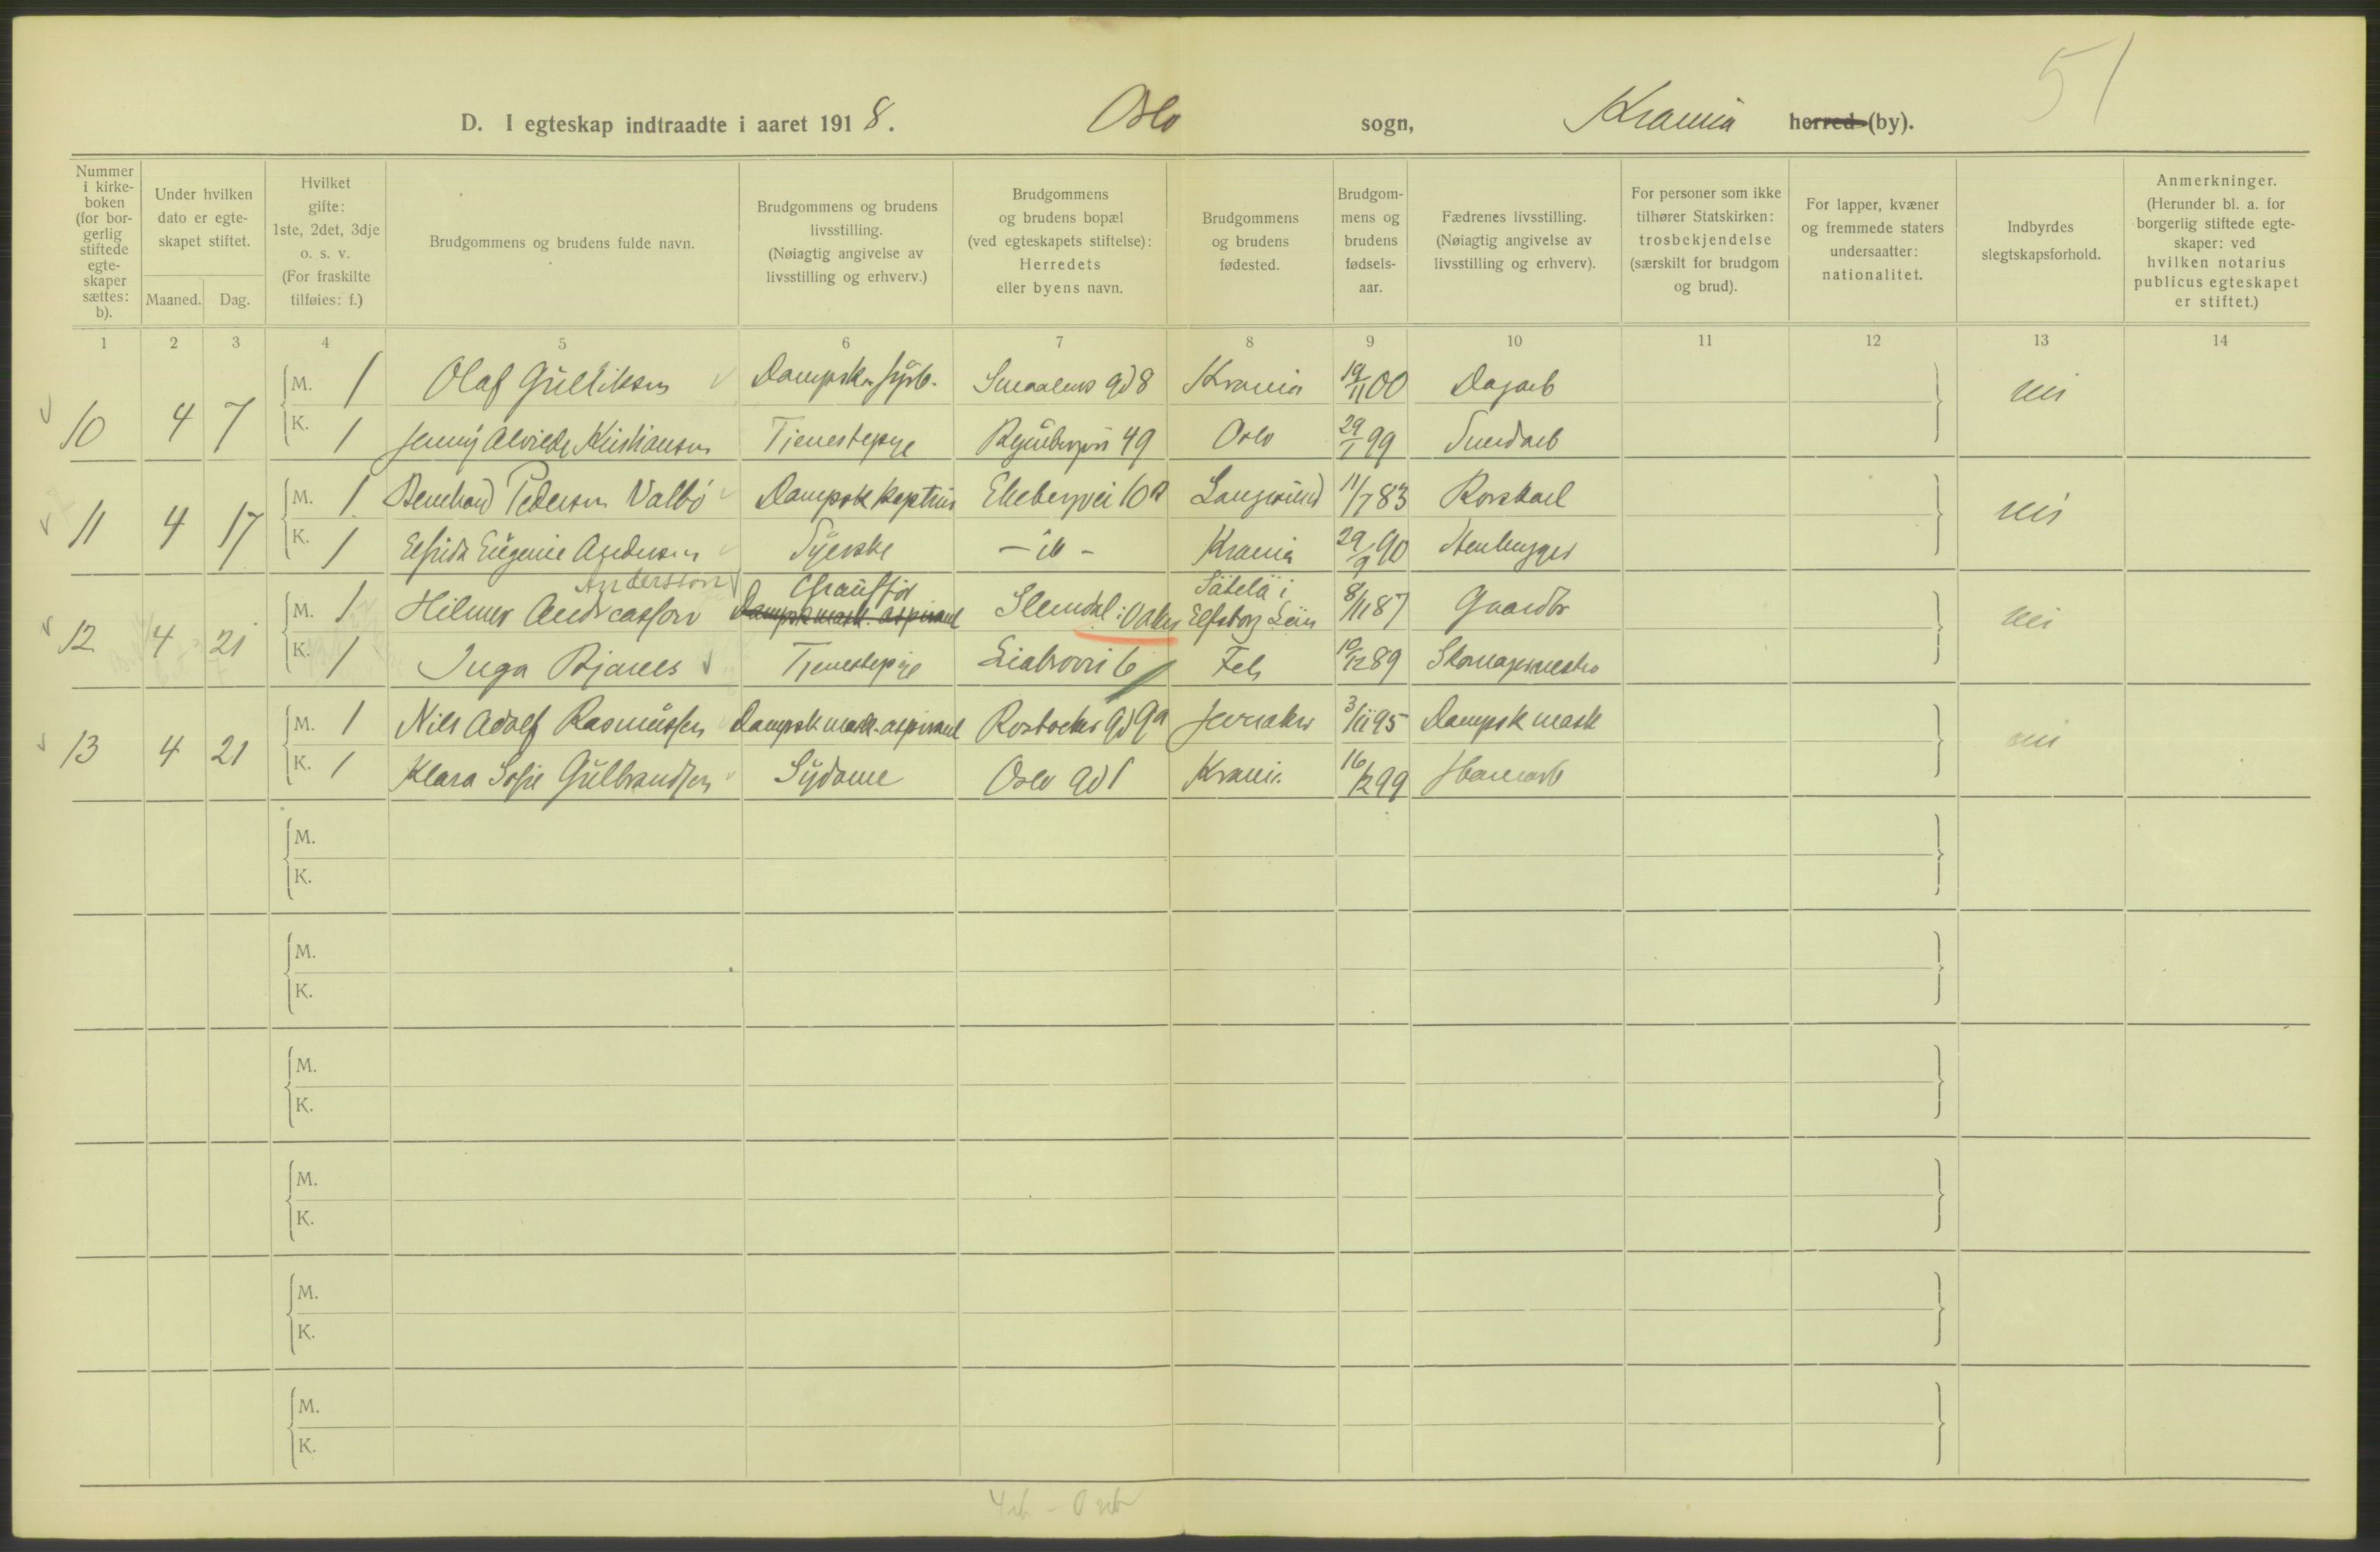 51
D. I egteskap indtraadte i aaret 1918. Oslo sogn, Krania herred (by).
Nummer i kirke-boken (for bor-gerlig stiftede egte-skaper sættes: b).
Under hvilken dato er egte-skapet stiftet.
Maaned. Dag.
Hvilket gifte: 1ste, 2det, 3dje o. s. v. (For fraskilte tilføies: f.)
Brudgommens og brudens fulde navn.
Brudgommens og brudens livsstilling. (Nøiagtig angivelse av livsstilling og erhverv.)
Brudgommens og brudens bopæl (ved egteskapets stiftelse): Herredets eller byens navn.
Brudgommens og brudens fødested.
Brudgom-mens og brudens fødsels-aar.
Fædrenes livsstilling. (Nøiagtig angivelse av livsstilling og erhverv).
For personer som ikke tilhører Statskirken: trosbekjendelse (særskilt for brudgom og brud).
For lapper, kvæner og fremmede staters undersaatter: nationalitet.
Indbyrdes slegtskapsforhold.
Anmerkninger. (Herunder bl. a. for borgerlig stiftede egte-skaper: ved hvilken notarius publicus egteskapet er stiftet.)
1 2 3 4 5 6 7 8 9 10 11 12 13 14
M. 1 Olaf Gulliksen Dampsk. fyrb. Smaalens gd 8 Krania 19/11 00 Dagarb nei
10 4 7 K. 1 Jenny Alvilde Kristiansen Tjenestepige Ryenbergvei 49 Oslo 29/1 99 Smedarb
M. 1 Bernhard Pedersen Valbö Dampsk kaptein Ekebergvei 10 a Langesund 11/7 83 Forskael nei
11 4 17 K. 1 Elfrida Eugenie Andersen Syerske - ib - Krania 29/9 90 Stenhugger
Andersson Chauffør Sätelä i
M. 1 Hilmer Andreasson Dampsk mask. aspirant Slemdal i Aker Elfsborg Län 8/11 87 Gaardbr nei
12 4 21 K. 1 Inga Bjanes Tjenestepige Liabrovei 6 Fets 10/12 89 Skomagermester
M. 1 Nils Adolf Rasmussen Dampsk mask. aspirant Rostocker gd 9a Jevnaker 3/11 95 Dampsk mask nei
13 4 21 K. 1 Klara Sofie Gulbrandsen Sydame Oslo gd 1 Krania 16/12 99 Havnearb
M.
K.
M.
K.
M.
K.
M.
K.
M.
K.
M.
K.